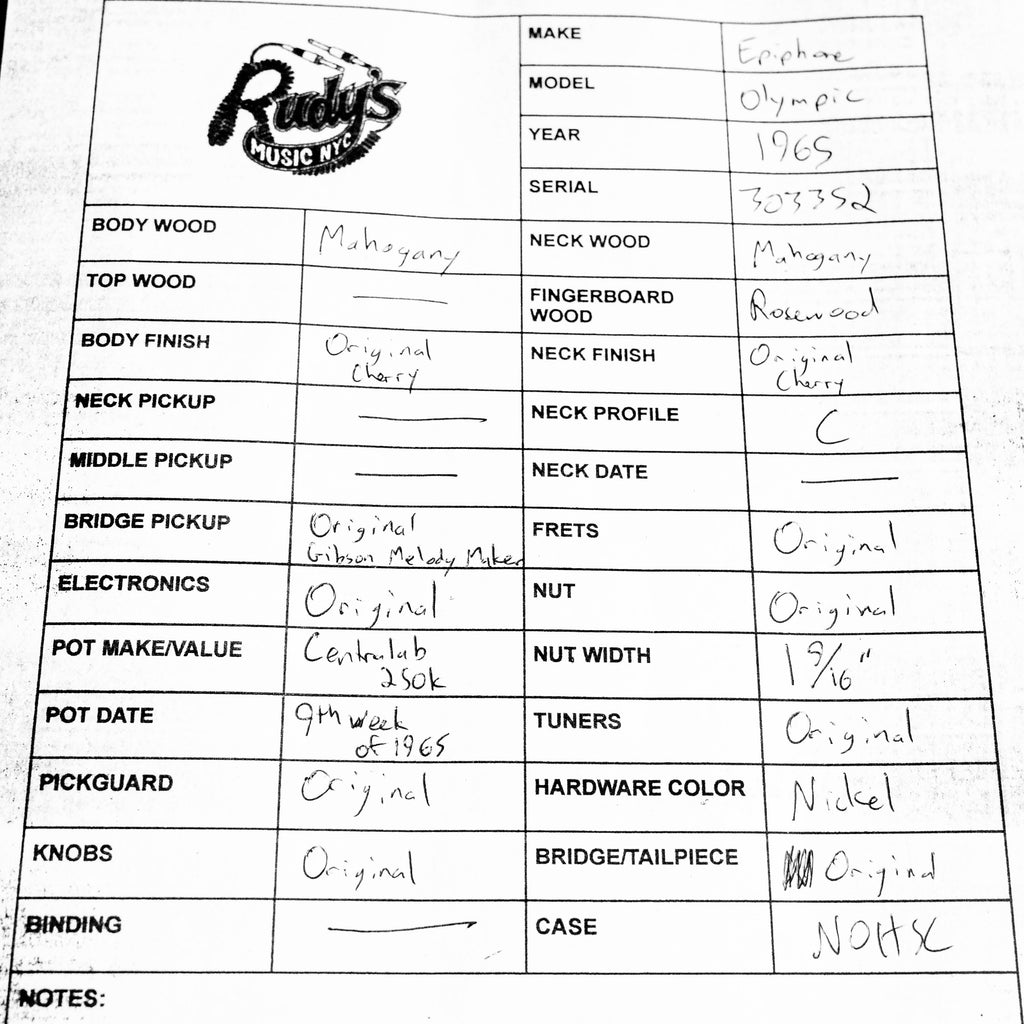 Rudy's
MUSIC NYC
MAKE Epiphone
MODEL Olympic
YEAR 1965
SERIAL 303352
BODY WOOD Mahogany
NECK WOOD Mahogany
TOP WOOD —
FINGERBOARD
WOOD Rosewood
BODY FINISH Original
Cherry
NECK FINISH Original
Cherry
NECK PICKUP —
NECK PROFILE C
MIDDLE PICKUP —
NECK DATE —
BRIDGE PICKUP Original
Gibson Melody Maker
FRETS Original
ELECTRONICS Original
NUT Original
POT MAKE/VALUE Centralab
250k
NUT WIDTH 1 9/16"
POT DATE 9th week
of 1965
TUNERS Original
PICKGUARD Original
HARDWARE COLOR Nickel
KNOBS Original
BRIDGE/TAILPIECE Original
BINDING —
CASE NOHSC
NOTES: